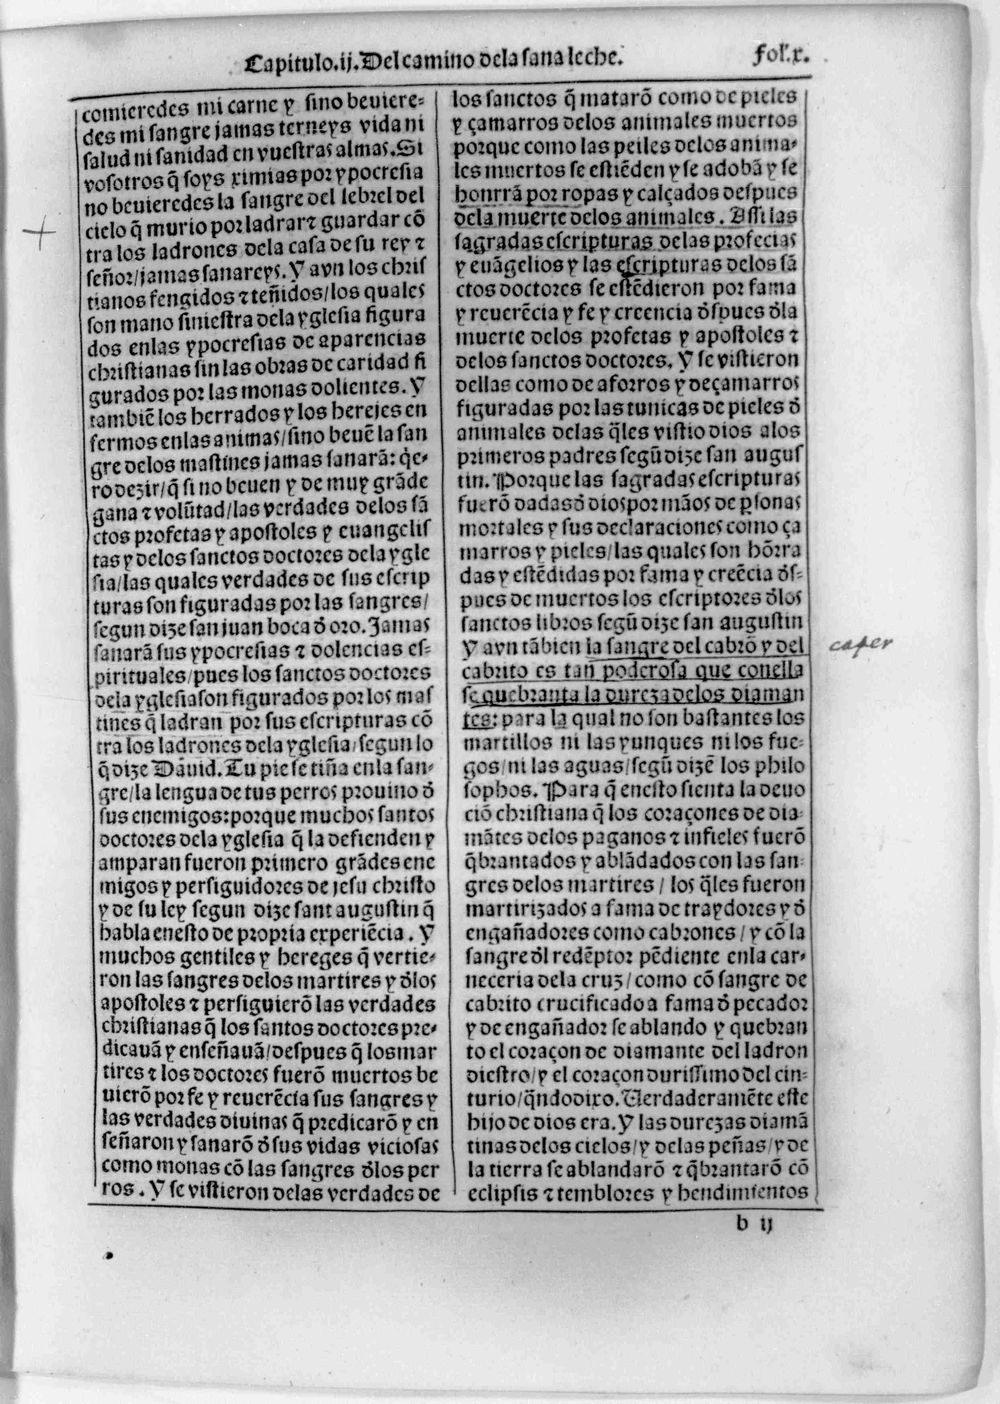 Capitulo.ij. Del camino dela sana leche. Fol'.x.
comieredes mi carne y sino beuiere-
des mi sangre jamas terneys vida ni
salud ni sanidad en vuestras almas. Si
vosotros q̃ soys ximias por ypocresia
no beuieredes la sangre del lebrel del
cielo q̃ murio por ladrar ⁊ guardar cõ
tra los ladrones dela casa de su rey ⁊
señor/jamas sanareys. Y avn los chris
tianos fengidos ⁊ teñidos/los quales
son mano siniestra dela yglesia figura
dos enlas ypocresias de aparencias
christianas sin las obras de caridad fi
gurados por las monas dolientes. Y
tambiẽ los herrados y los herejes en
fermos enlas animas/sino beuẽ la san
gre delos mastines jamas sanarã: q̃e-
ro dezir/q̃ si no beuen y de muy grãde
gana ⁊ volũtad/las verdades delos sã
ctos profetas y apostoles y euangelis
tas y delos sanctos doctores dela ygle
sia/las quales verdades de sus escrip
turas son figuradas por las sangres/
segun dize san juan boca đ oro. Jamas
sanarã sus ypocresias ⁊ dolencias es-
pirituales/pues los sanctos doctores
dela yglesia son figurados por los mas
tines q̃ ladran por sus escripturas cõ
tra los ladrones dela yglesia/segun lo
q̃ dize Dauid. Tu pie se tiña enla san-
gre/la lengua de tus perros prouino đ
sus enemigos: porque muchos santos
doctores dela yglesia q̃ la defienden y
amparan fueron primero grãdes ene
migos y persiguidores de jesu christo
y de su ley segun dize sant augustin q̃
habla enesto de propria experiẽcia. Y
muchos gentiles y hereges q̃ vertie-
ron las sangres delos martires y đlos
apostoles ⁊ persiguierõ las verdades
christianas q̃ los santos doctores pre-
dicauã y enseñauã/despues q̃ los mar
tires ⁊ los doctores fuerõ muertos be
uierõ por fe y reuerẽcia sus sangres y
las verdades diuinas q̃ predicarõ y en
señaron y sanarõ đ sus vidas viciosas
como monas cõ las sangres đlos per
ros. Y se vistieron delas verdades de
los sanctos q̃ matarõ como de pieles
y çamarros delos animales muertos
porque como las pelles delos anima-
les muertos se estiẽden y se adobã y se
honrrã por ropas y calçados despues
dela muerte delos animales. Assi las
sagradas escripturas delas profecias
y euãgelios y las escripturas delos sã
ctos doctores se estẽdieron por fama
y reuerẽcia y fe y creencia đspues đla
muerte delos profetas y apostoles ⁊
delos sanctos doctores. Y se vistieron
dellas como de aforros y de çamarros
figuradas por las tunicas de pieles đ
animales delas q̃les vistio dios alos
primeros padres segũ dize san augus
tin. Porque las sagradas escripturas
fuerõ dadas đ dios por mãos de ꝑsonas
mortales y sus declaraciones como ça
marros y pieles/las quales son hõrra
das y estẽdidas por fama y creẽcia đs-
pues de muertos los escriptores đlos
sanctos libros segũ dize san augustin
Y avn tãbien la sangre del cabrõ y del
cabrito es tan poderosa que conella
se quebranta la dureza delos diaman
tes: para la qual no son bastantes los
martillos ni las yunques ni los fue-
gos/ni las aguas/segũ dizẽ los philo
sophos. Para q̃ enesto sienta la deuo
ciõ christiana q̃ los coraçones de dia-
mãtes delos paganos ⁊ infieles fuerõ
q̃brantados y ablãdados con las san-
gres delos martires/ los q̃les fueron
martirizados a fama de traydores y đ
engañadores como cabrones/ y cõ la
sangre đl redẽptor pẽdiente enla car-
neceria dela cruz/como cõ sangre de
cabrito crucificado a fama đ pecador
y de engañador se ablando y quebran
to el coraçon de diamante del ladron
diestro/y el coraçon durissimo del cin-
turio/q̃ndo dixo. Uerdaderamẽte este
hijo de dios era. Y las durezas diamã
tinas delos cielos/y delas peñas/y de
la tierra se ablandarõ ⁊ q̃brantarõ cõ
eclipsis ⁊ temblores y hendimientos
caper
b ij